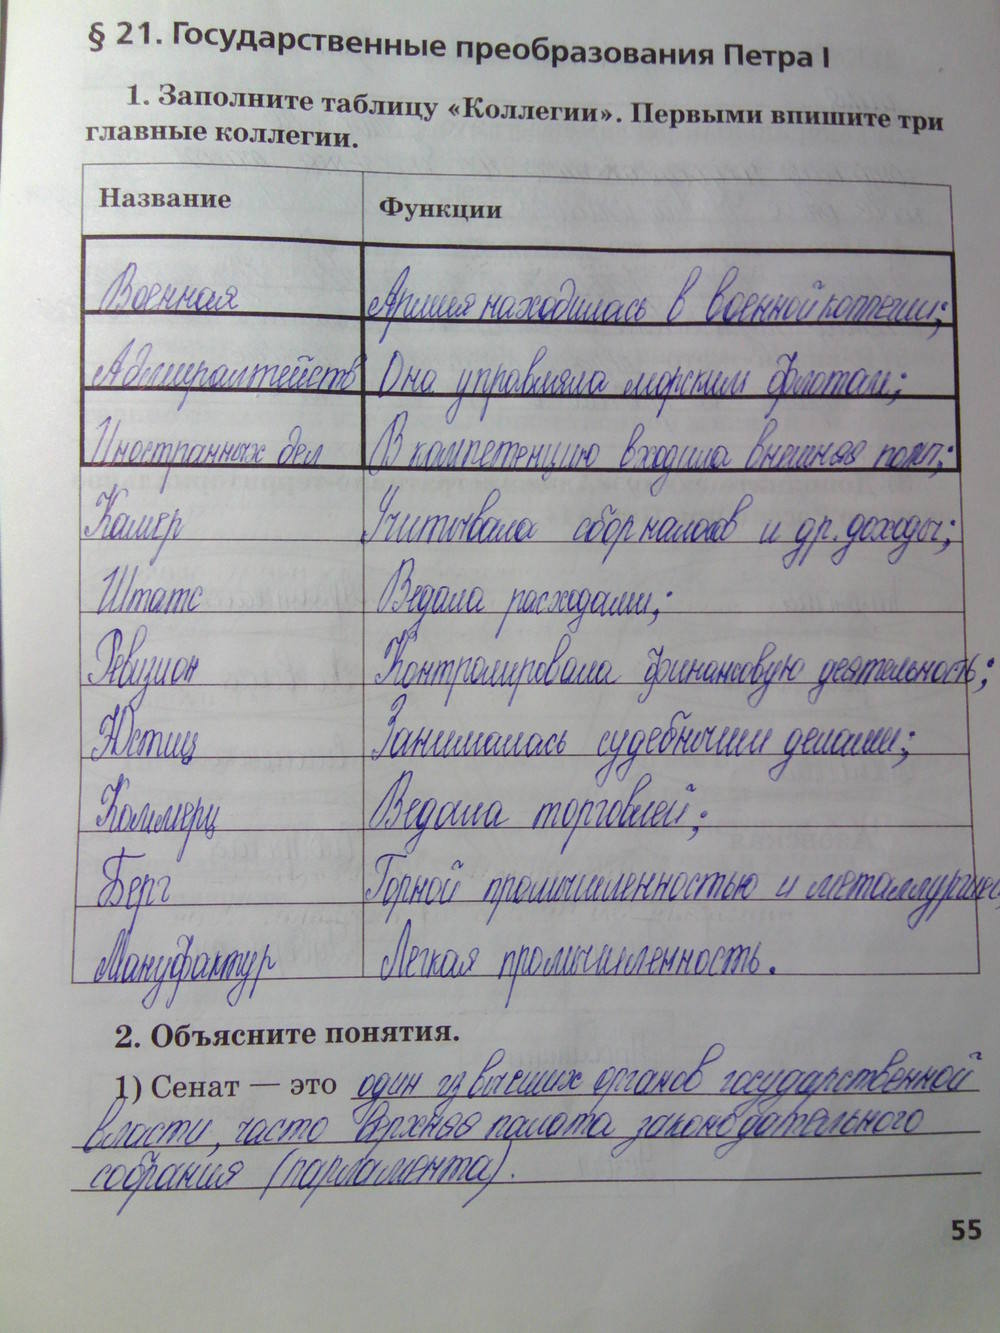 § 21. Государственные преобразования Петра I
1. Заполните таблицу «Коллегии». Первыми впишите три
главные коллегии.
Название Функции
Военная Армия находилась в военной коллегии;
Адмиралтейств Она управляла морским флотом;
Иностранных дел В компетенцию входила внешняя полит;
Камер Учитывала сбор налогов и др. доходы;
Штатс Ведала расходами;
Ревизион Контролировала финансовую деятельность;
Юстиц Занималась судебными делами;
Коммерц Ведала торговлей;
Берг Горной промышленностью и металлургией,
Мануфактур Легкая промышленность.
2. Объясните понятия.
1) Сенат — это один из высших органов государственной
власти, часто Верхняя палата законодательного
собрания (парламента).
55